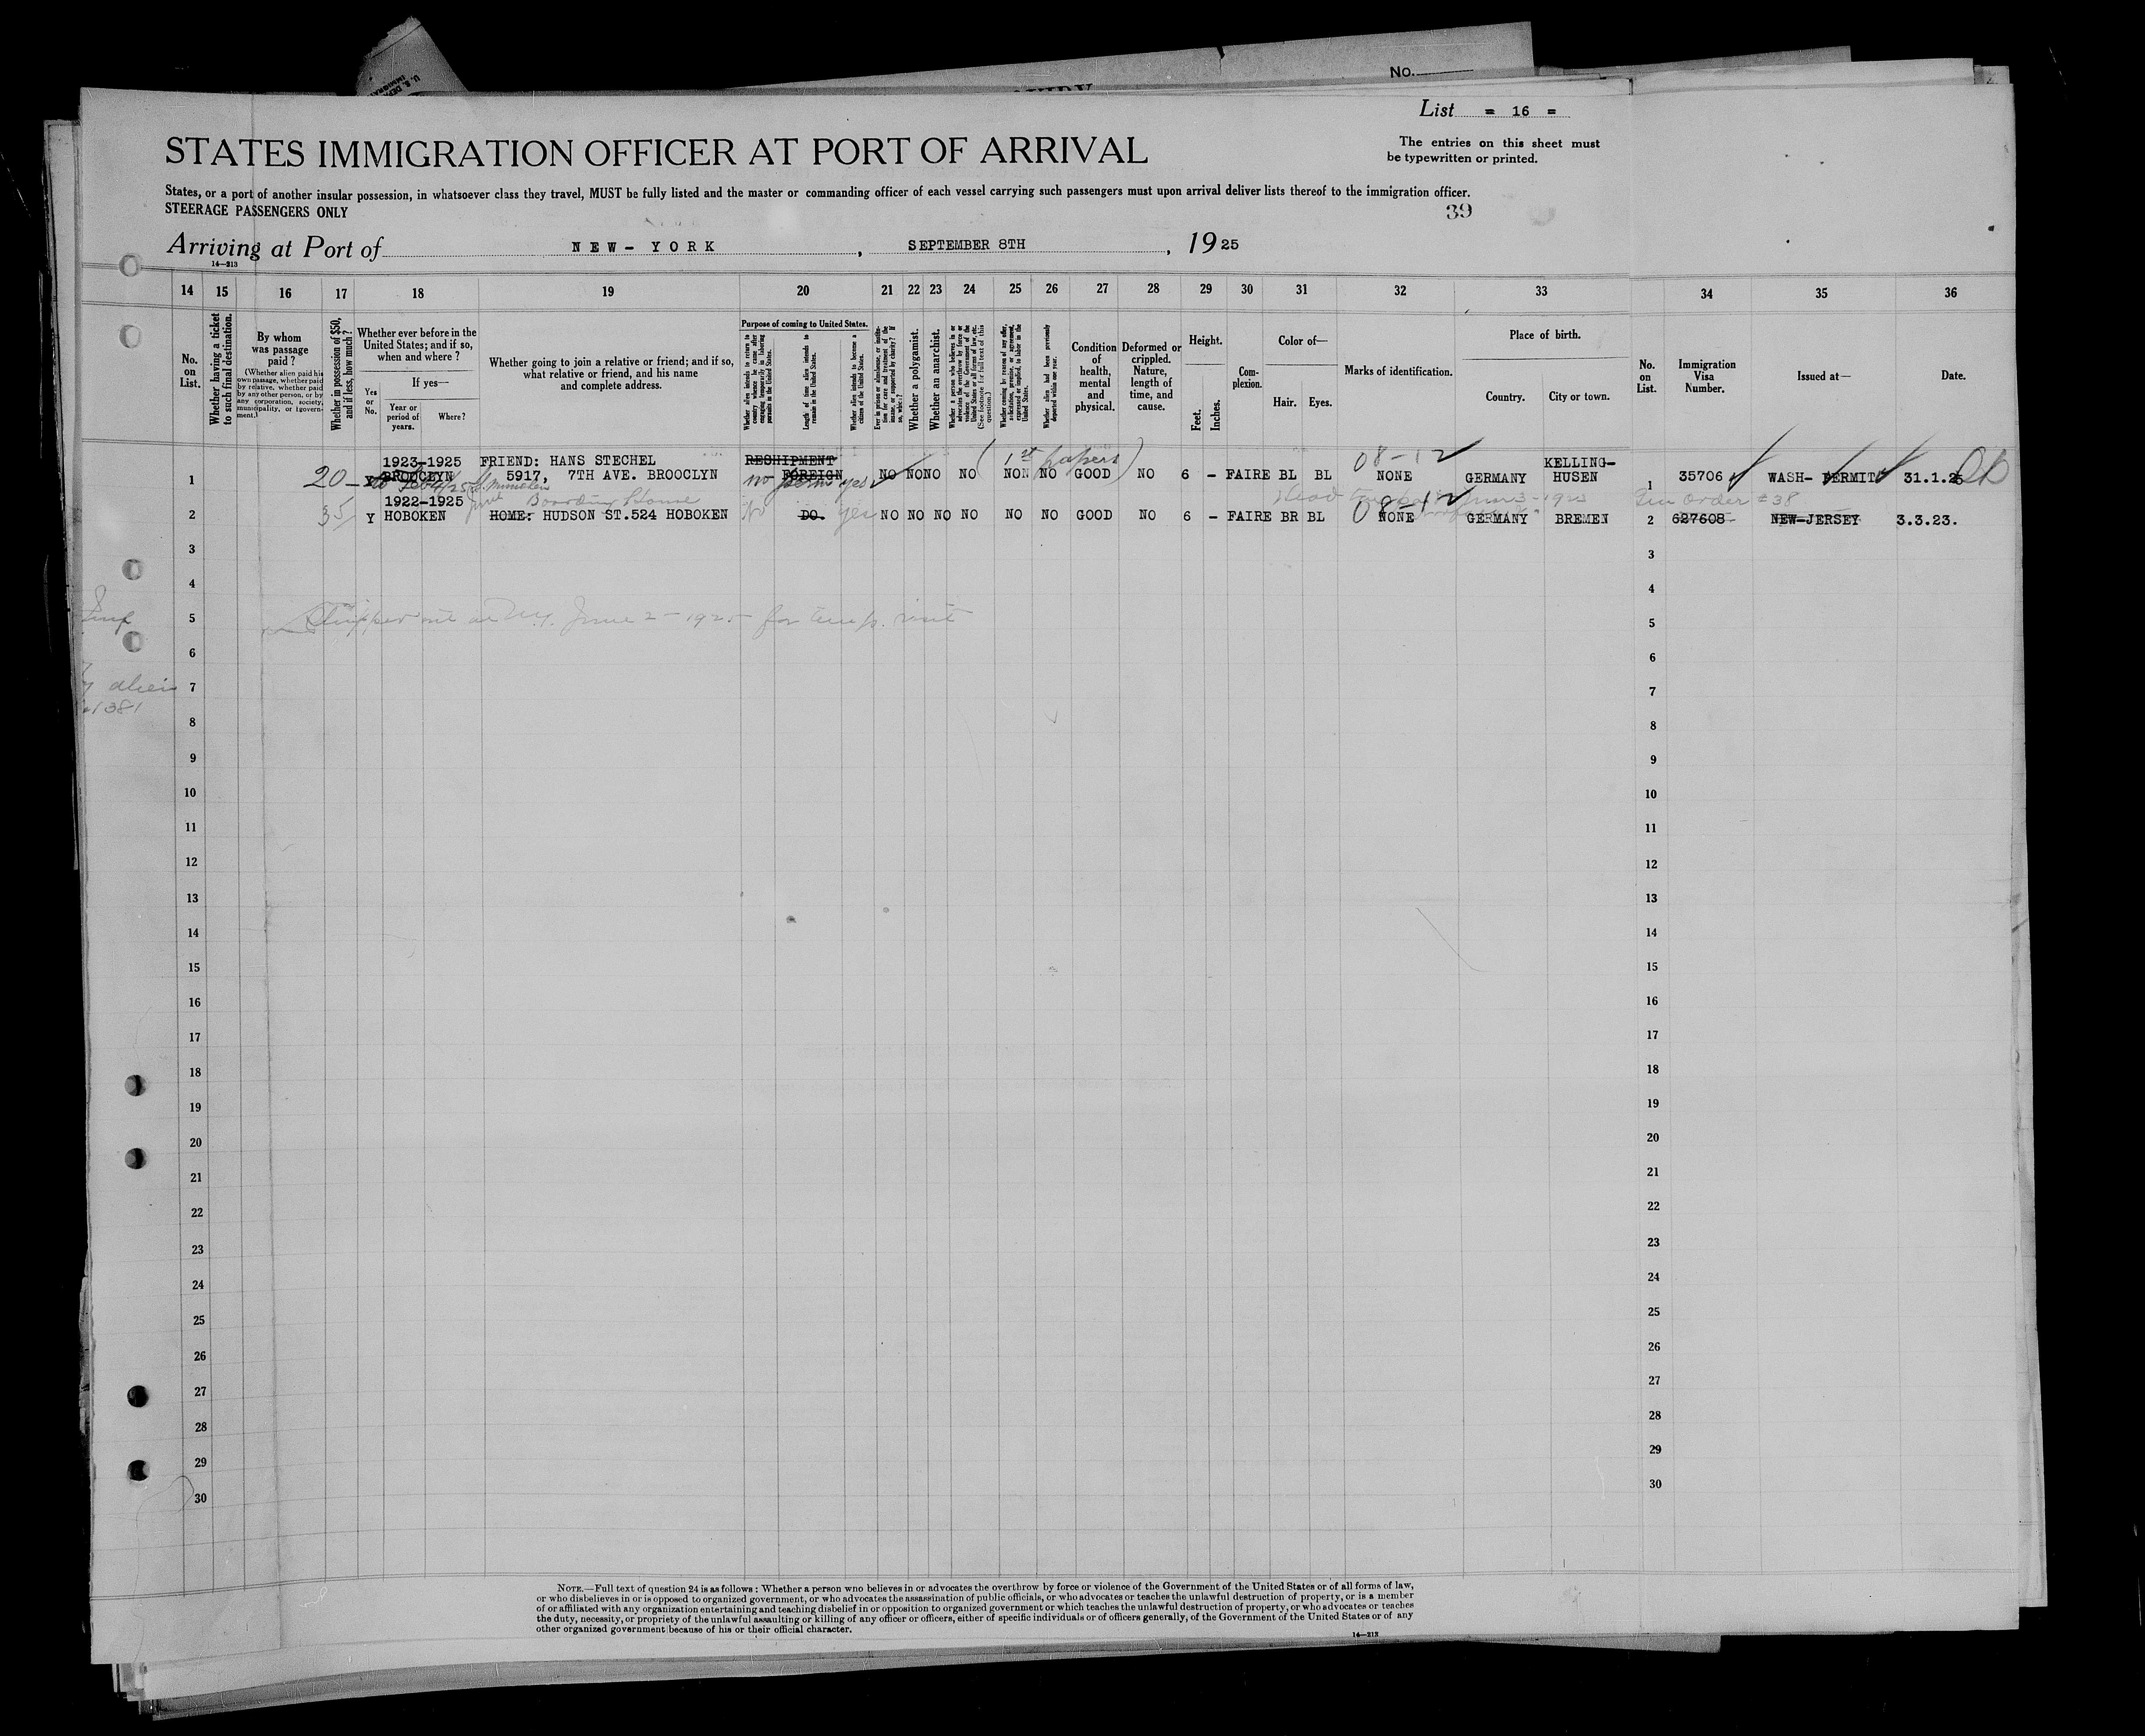 No.
List = 16 =
STATES IMMIGRATION OFFICER AT PORT OF ARRIVAL
The entries on this sheet must
be typewritten or printed.
States, or a port of another insular possession, in whatsoever class they travel, MUST be fully listed and the master or commanding officer of each vessel carrying such passengers must upon arrival deliver lists thereof to the immigration officer.
STEERAGE PASSENGERS ONLY
39
Arriving at Port of NEW-YORK, SEPTEMBER 8TH, 1925
14—213
14 15 16 17 18 19 20 21 22 23 24 25 26 27 28 29 30 31 32 33 34 35 36
No. on List.
Whether having a ticket to such final destination.
By whom was passage paid?
(Whether alien paid his own passage, whether paid by relative, whether paid by any other person, or by any corporation, society, municipality, or government.)
Whether in possession of $50, and if less, how much?
Whether ever before in the United States; and if so, when and where?
Yes or No.
If yes—
Year or period of years.
Where?
Whether going to join a relative or friend; and if so, what relative or friend, and his name and complete address.
Purpose of coming to United States.
Whether alien intends to return to country whence he came after engaging temporarily in laboring pursuits in the United States.
Length of time alien intends to remain in the United States.
Whether alien intends to become a citizen of the United States.
Ever in prison or almshouse, or institution for care and treatment of the insane, or supported by charity? If so, which?
Whether a polygamist.
Whether an anarchist.
Whether a person who believes in or advocates the overthrow by force or violence of the Government of the United States or all forms of law, etc. (See footnote for full text of this question.)
Whether coming by reason of any offer, solicitation, promise, or agreement, expressed or implied, to labor in the United States.
Whether alien had been previously deported within one year.
Condition of health, mental and physical.
Deformed or crippled. Nature, length of time, and cause.
Height.
Feet. Inches.
Complexion.
Color of—
Hair. Eyes.
Marks of identification.
Place of birth.
Country. City or town.
No. on List.
Immigration Visa Number.
Issued at—
Date.
1923-1925 FRIEND: HANS STECHEL RESHIPMENT 1st papers 08-12 KELLING-
1 20- BROOCLYN 5917, 7TH AVE. BROOCLYN no FOREIGN yes NO NO NO NO NON NO GOOD NO 6 - FAIRE BL BL NONE GERMANY HUSEN 1 35706 WASH- PERMIT 31.1.25 OK
1922-1925 Boarding House Head June 3-1925 Gen Order #38
2 35 Y HOBOKEN HOME: HUDSON ST.524 HOBOKEN No DO. Yes NO NO NO NO NO NO GOOD NO 6 - FAIRE BR BL 08-12 NONE GERMANY BREMEN 2 627608 NEW-JERSEY 3.3.23.
3 3
4 4
5 Shipped out at N.Y. June 2-1925 for temp. visit 5
6 6
alien 7 7
1381
8 8
9 9
10 10
11 11
12 12
13 13
14 14
15 15
16 16
17 17
18 18
19 19
20 20
21 21
22 22
23 23
24 24
25 25
26 26
27 27
28 28
29 29
30 30
NOTE.—Full text of question 24 is as follows: Whether a person who believes in or advocates the overthrow by force or violence of the Government of the United States or of all forms of law,
or who disbelieves in or is opposed to organized government, or who advocates the assassination of public officials, or who advocates or teaches the unlawful destruction of property, or is a member
of or affiliated with any organization entertaining and teaching disbelief in or opposition to organized government or which teaches the unlawful destruction of property, or who advocates or teaches
the duty, necessity, or propriety of the unlawful assaulting or killing of any officer or officers, either of specific individuals or of officers generally, of the Government of the United States or of any
other organized government because of his or their official character.
14—213